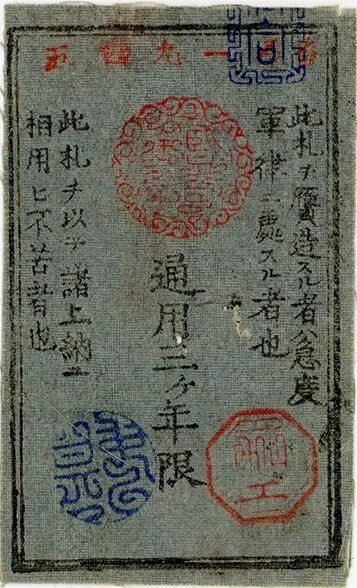 一九四五
此札ヲ贋造スル者ハ急度
軍律ニ處スル者也
通用三ヶ年限
此札ヲ以テ諸上納ニ
相用ヒ不苦者也